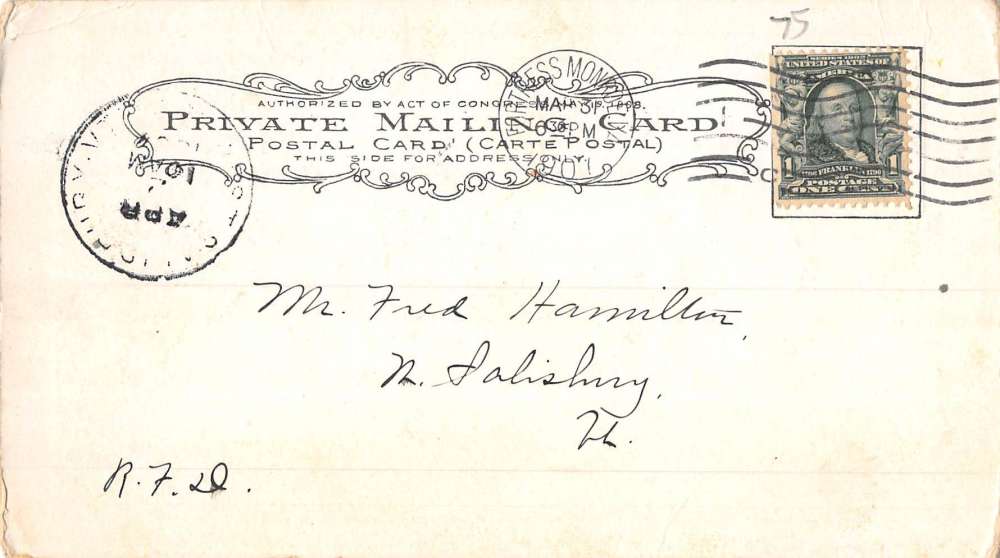 75
SERIES 1902
UNITED STATES OF
AMERICA
AUTHORIZED BY ACT OF CONGRESS MAY 19, 1898.
PRIVATE MAILING CARD
POSTAL CARD (CARTE POSTAL)
THIS SIDE FOR ADDRESS ONLY.
FORTRESS MONROE
MAR 31
PM
1 1706 FRANKLIN 1790 1
POSTAGE
ONE CENT
APR
Mr. Fred Hamilton,
N. Salisbury,
Vt.
R.F.D.